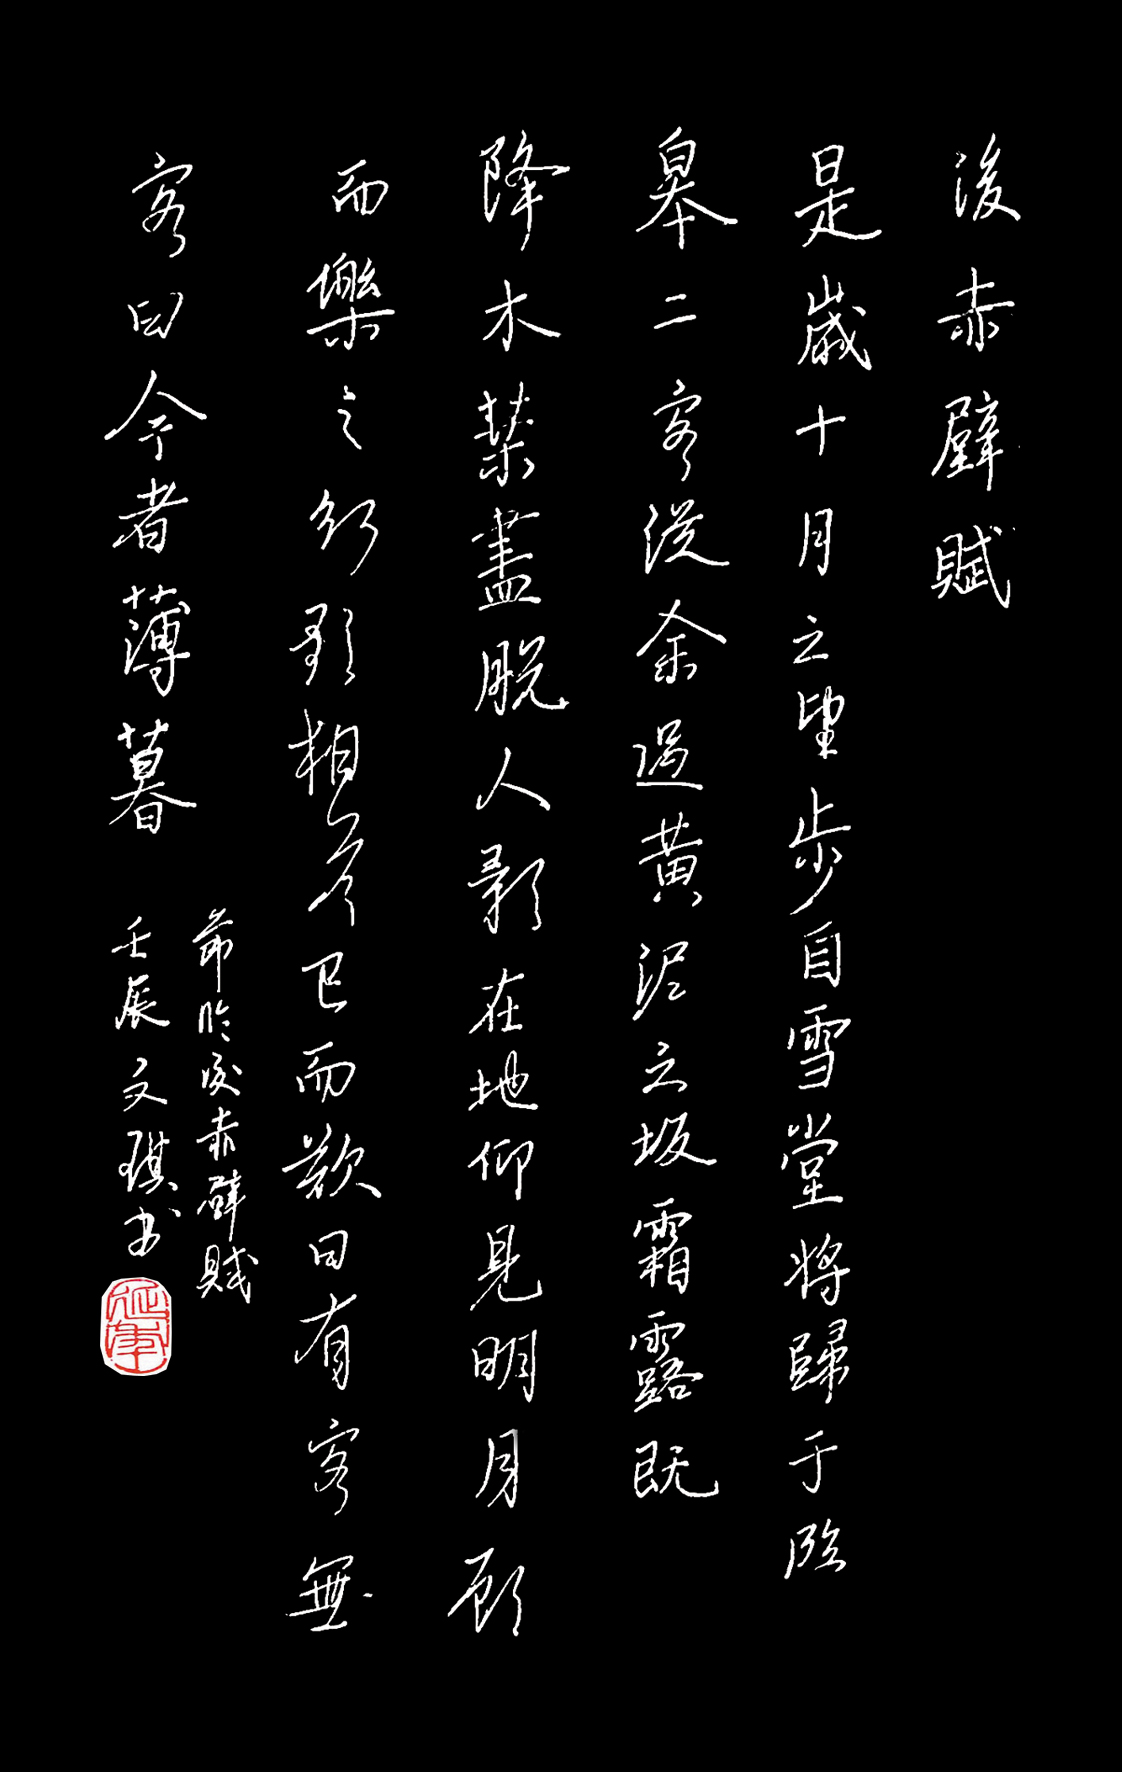 後赤壁賦
是歲十月之望步自雪堂將歸于臨
皋二客從余過黃泥之坂霜露既
降木葉盡脫人影在地仰見明月顧
而樂之行歌相答已而歎曰有客無
客曰今者薄暮
節临後赤壁賦
壬辰文琪书
延年